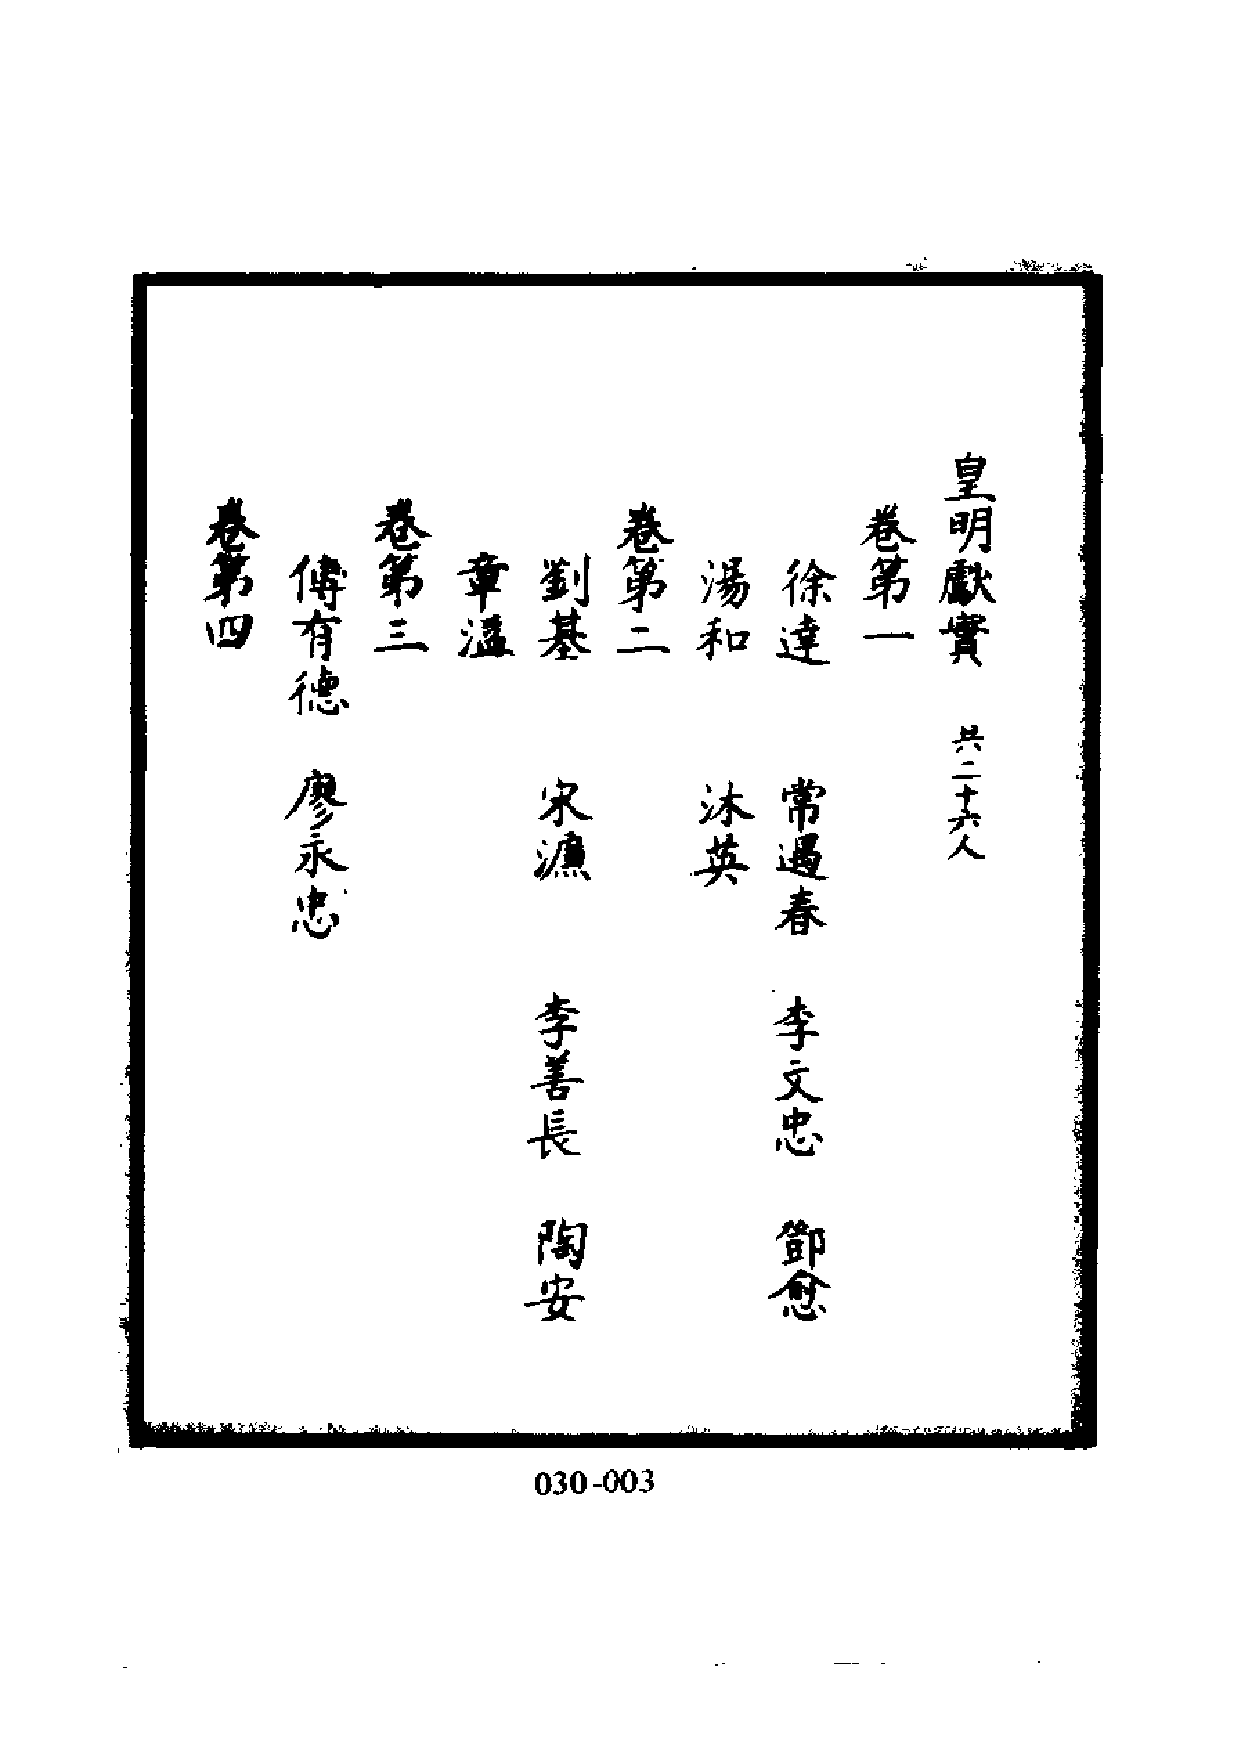 皇明獻實 共二十六人
卷第一
徐達 常遇春 李文忠 鄧愈
湯和 沐英
卷第二
劉基 宋濂 李善長 陶安
章溢
卷第三
傅有德 廖永忠
卷第四
030-003